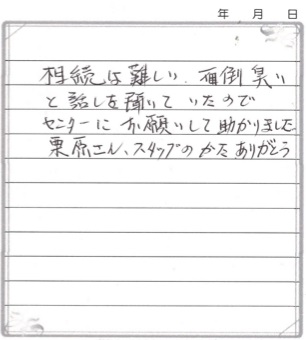 年 月 日
相続は難しい、面倒臭い
と話しを聞いていたので
センターにお願いして助かりました。
栗原さん、スタッフのかたありがとう